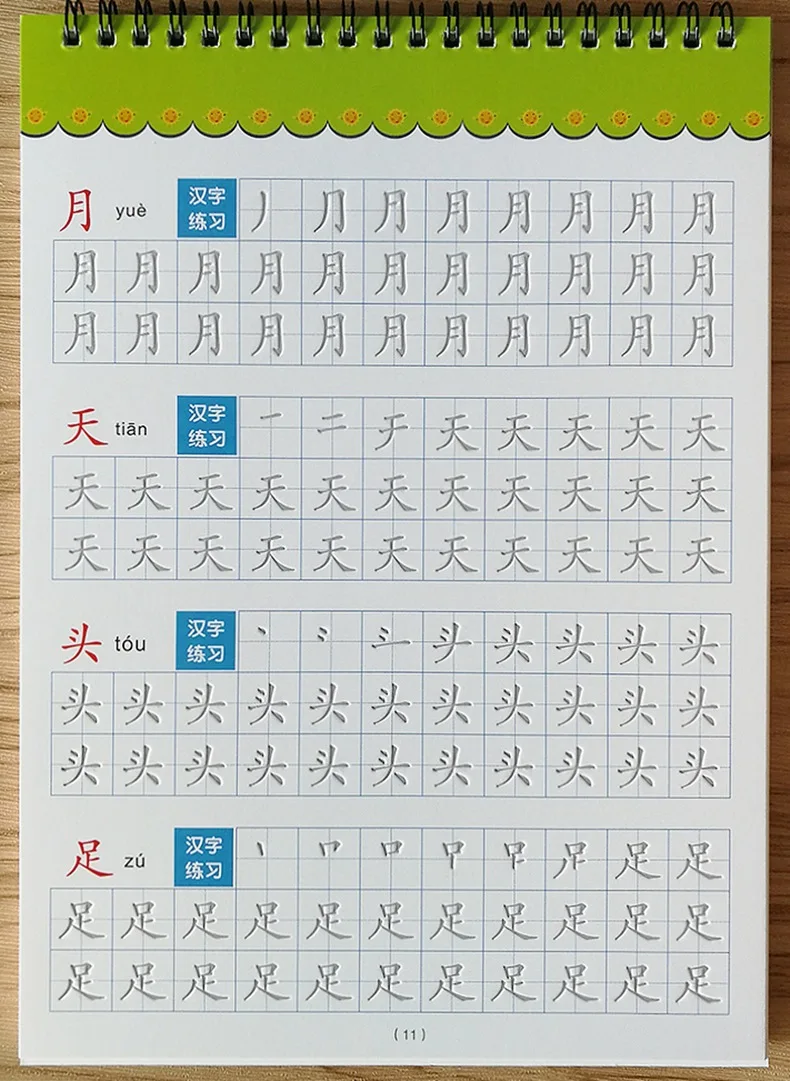 月 yuè 汉字
练习 丿 月 月 月 月 月 月
月 月 月 月 月 月 月 月 月 月 月
月 月 月 月 月 月 月 月 月 月 月
天 tiān 汉字
练习 一 二 天 天 天 天 天
天 天 天 天 天 天 天 天 天 天 天
天 天 天 天 天 天 天 天 天 天 天
头 tóu 汉字
练习 丶 头 头 头 头
头 头 头 头 头 头 头 头 头 头 头
头 头 头 头 头 头 头 头 头 头 头
足 zú 汉字
练习 丨 口 足 足
足 足 足 足 足 足 足 足 足 足 足
足 足 足 足 足 足 足 足 足 足 足
(11)